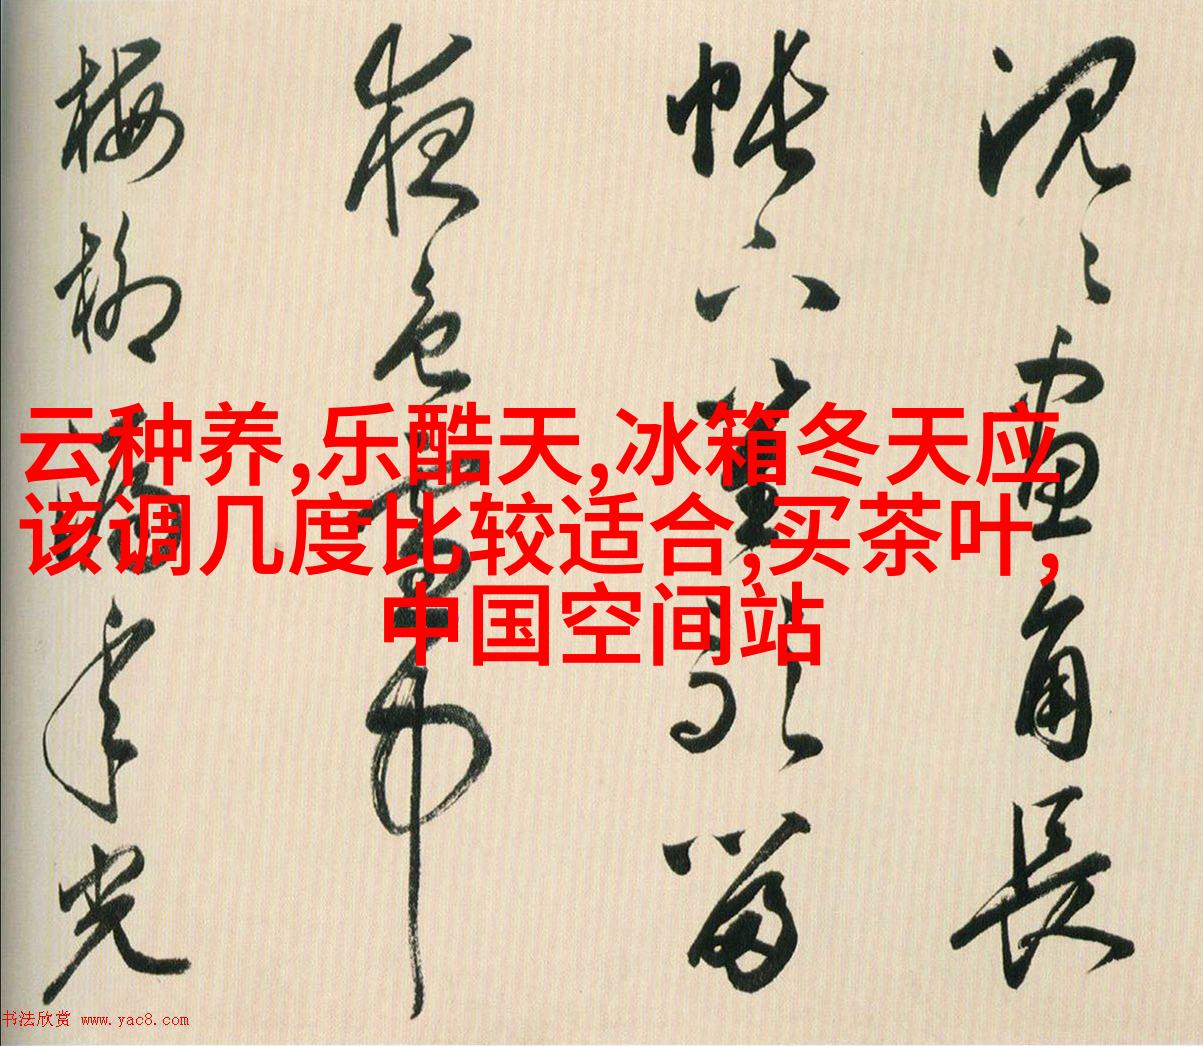 云种养,乐酷天,冰箱冬天应
该调几度比较适合,买茶叶,
中国空间站
画角長
帐六
夜色
梅柳年光
书法欣赏 www.yac8.com